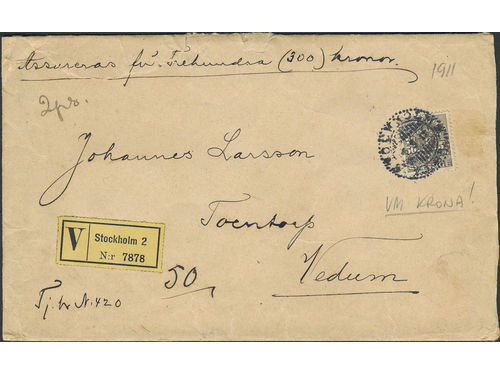 Assureras för Trehundra (300) kronor.
1911
2por.
Johannes Larsson
VM KRONA!
Toentorp
V Stockholm 2
N:r 7878
50
Vedum
Tj. br N. 420